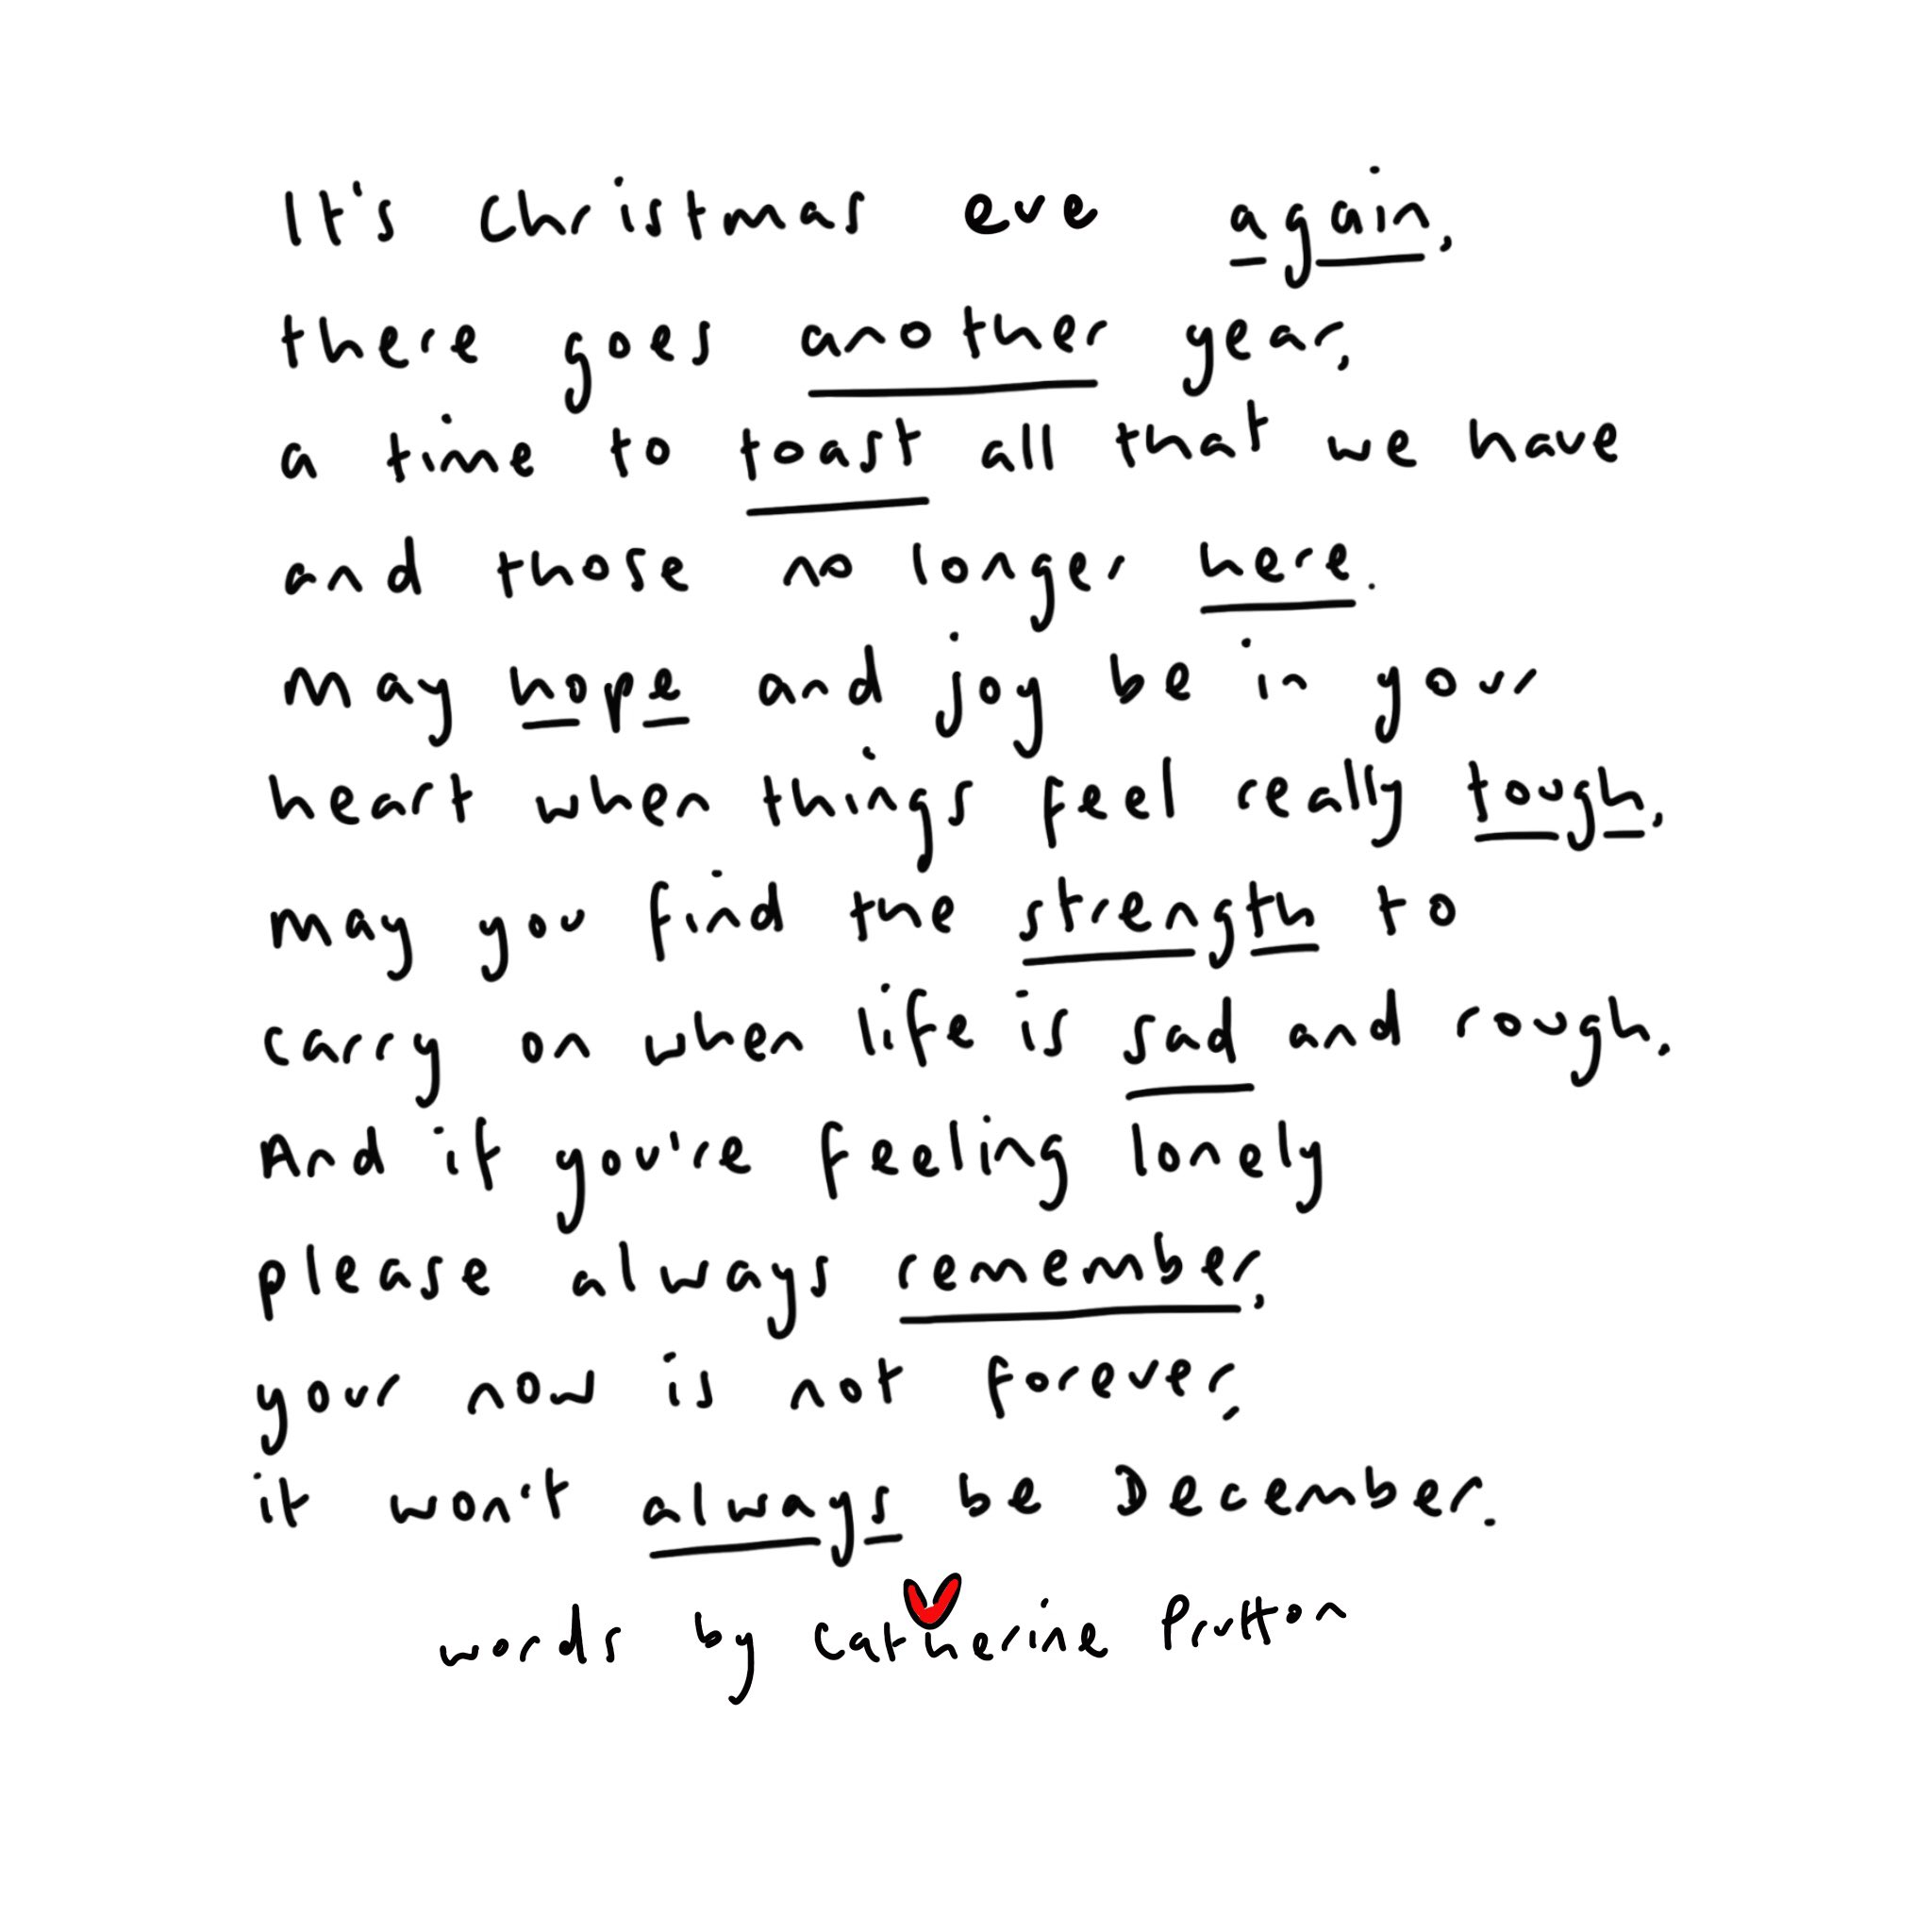 It's Christmas eve again,
there goes another year,
a time to toast all that we have
and those no longer here.
may hope and joy be in your
heart when things feel really tough,
may you find the strength to
carry on when life is sad and rough.
And if you're feeling lonely
please always remember,
your now is not forever,
it won't always be December.
words by Catherine Prutton